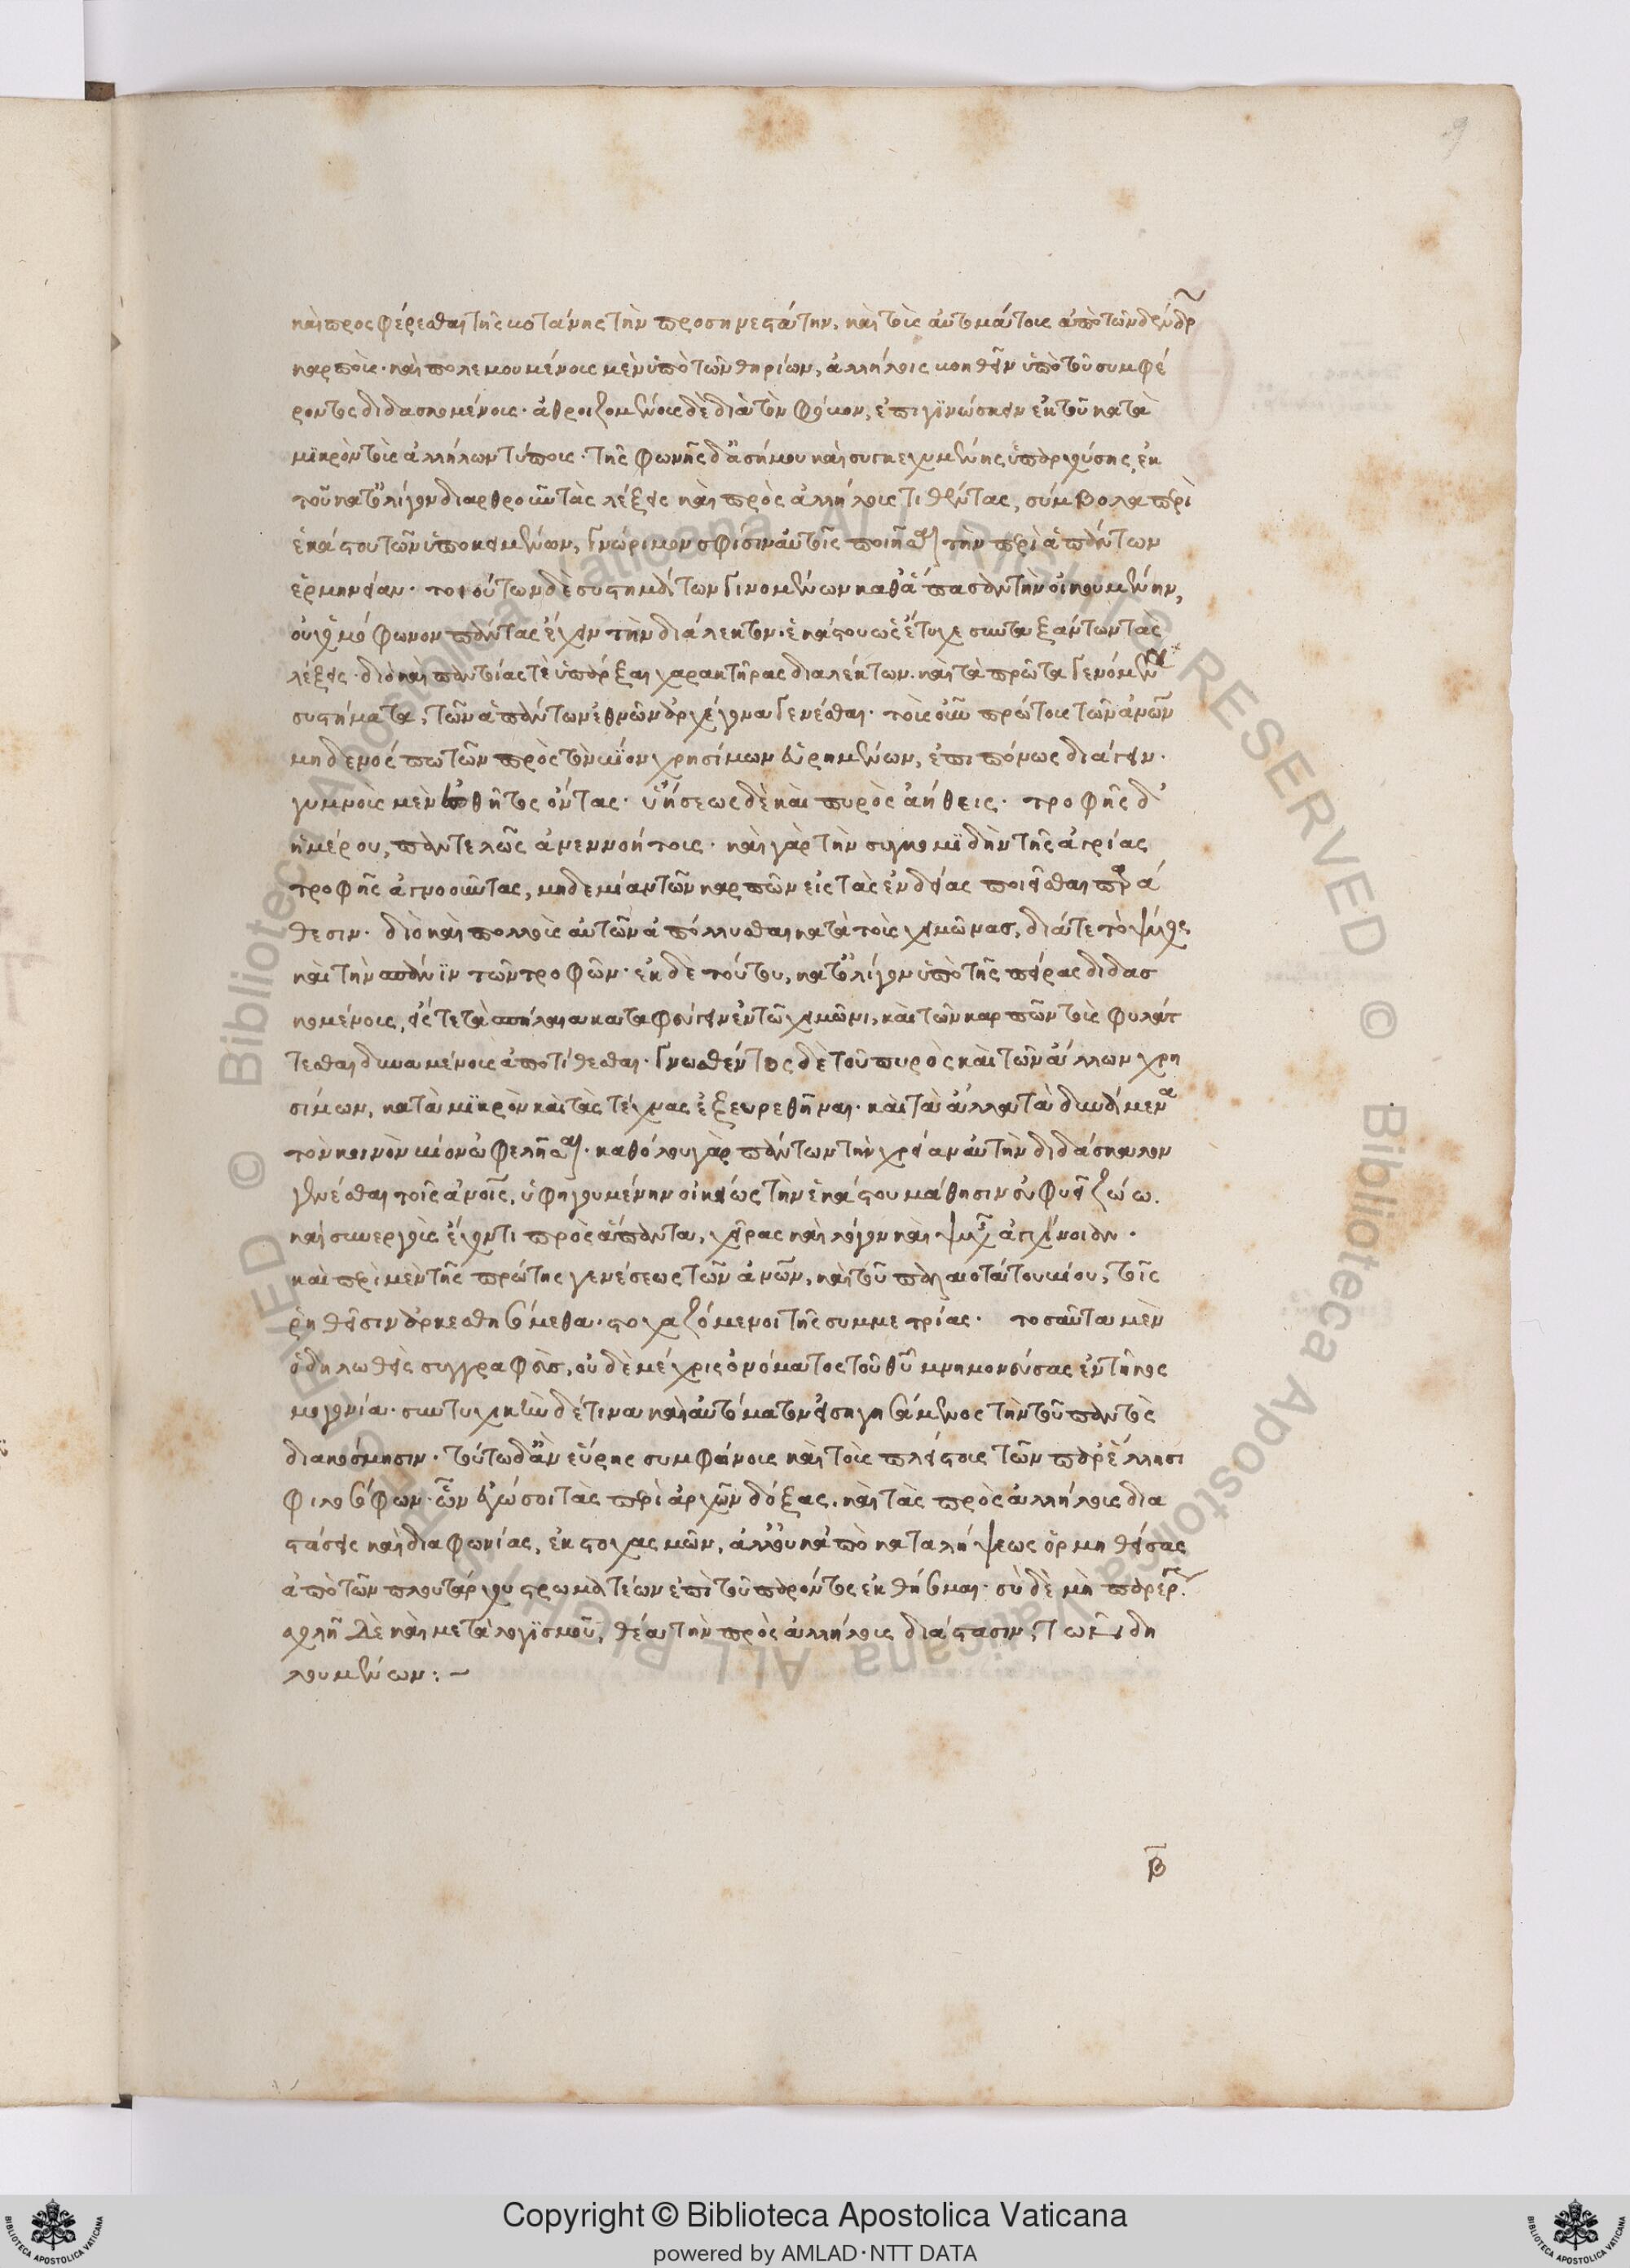 9
καὶ προσφέρεσθαι τῆς βοτάνης τὴν προσηνεστάτην, καὶ τοὺς αὐτομάτους ἀπὸ τῶν δένδρ
καρπούς· καὶ πολεμουμένους μὲν ὑπὸ τῶν θηρίων, ἀλλήλοις βοηθεῖν ὑπὸ τοῦ συμφέ
ροντος διδασκομένους· ἀθροιζομένους δὲ διὰ τὸν φόβον, ἐπιγινώσκειν ἐκ τοῦ κατὰ
μικρὸν τοὺς ἀλλήλων τύπους· τῆς φωνῆς δ' ἀσήμου καὶ συγκεχυμένης ὑπαρχούσης, ἐκ
τοῦ κατ' ὀλίγον διαρθροῦν τὰς λέξεις καὶ πρὸς ἀλλήλους τιθέντας, σύμβολα περὶ
ἑκάστου τῶν ὑποκειμένων, γνώριμον σφίσιν αὐτοῖς ποιῆσαι τὴν περὶ ἁπάντων
ἑρμηνείαν· τοιούτων δὲ συστημάτων γινομένων καθ' ἅπασαν τὴν οἰκουμένην,
οὐχ ὁμόφωνον πάντας ἔχειν τὴν διάλεκτον· ἑκάστου ὡς ἔτυχε συνταξάντων τὰς
λέξεις· διὸ καὶ παντοίας τὲ ὑπάρξαι χαρακτῆρας διαλέκτων· καὶ τὰ πρῶτα γενόμενα
συστήματα, τῶν ἁπάντων ἐθνῶν ἀρχέγονα γενέσθαι· τοὺς οὖν πρώτους τῶν ἀνῶν
μηδενός πω τῶν πρὸς τὸν βίον χρησίμων εὑρημένων, ἐπιπόνως διάγειν·
γυμνοὺς μὲν ἐσθῆτος ὄντας· οἰκήσεως δὲ καὶ πυρὸς ἀήθεις· τροφῆς δ'
ἡμέρου, παντελῶς ἀνεννοήτους· καὶ γὰρ τὴν συγκομιδὴν τῆς ἀγρίας
τροφῆς ἀγνοοῦντας, μηδεμίαν τῶν καρπῶν εἰς τὰς ἐνδείας ποιεῖσθαι παρά
θεσιν· διὸ καὶ πολλοὺς αὐτῶν ἀπόλλυσθαι κατὰ τοὺς χειμῶνας, διά τε τὸ ψύχος
καὶ τὴν σπάνιν τῶν τροφῶν· ἐκ δὲ τούτου, κατ' ὀλίγον ὑπὸ τῆς πείρας διδασ
κομένους, εἴς τε τὰ σπήλαια καταφεύγειν ἐν τῶ χειμῶνι, καὶ τῶν καρπῶν τοὺς φυλάτ
τεσθαι δυναμένους ἀποτίθεσθαι· γνωσθέντος δὲ τοῦ πυρὸς καὶ τῶν ἄλλων χρη
σίμων, κατὰ μικρὸν καὶ τὰς τέχνας ἐξευρεθῆναι· καὶ τὰ ἄλλα τὰ δυνάμενα
τὸν κοινὸν βίον ὠφελῆσαι· καθόλου γὰρ πάντων τὴν χρείαν αὐτὴν διδάσκαλον
γενέσθαι τοῖς ἀνοις, ὑφηγουμένην οἰκείως τὴν ἑκάστου μάθησιν εὐφυεῖ ζώω.
καὶ συνεργοὺς ἔχοντι πρὸς ἅπαντα, χεῖρας καὶ λόγον καὶ ψυχῆς ἀγχίνοιαν·
καὶ περὶ μὲν τῆς πρώτης γενέσεως τῶν ἀνῶν, καὶ τοῦ παλαιοτάτου βίου, τοῖς
ῥηθεῖσιν ἀρκεσθησόμεθα· στοχαζόμενοι τῆς συμμετρίας· τοσαῦτα μὲν
ὁ δηλωθεὶς συγγραφεὺς, οὐδὲ μέχρις ὀνόματος τοῦ θῦ μνημονεύσας ἐν τῆ κοσ
μογονία· συντυχικὴν δέ τινα καὶ αὐτόματον εἰσηγησάμενος τὴν τοῦ παντὸς
διακόσμησιν· τούτω δ' ἂν εὕρης συμφώνους καὶ τοὺς πλείστους τῶν παρ' ἕλλησι
φιλοσόφων· ὧν ἐγώ σοι τὰς περὶ ἀρχῶν δόξας, καὶ τὰς πρὸς ἀλλήλους δια
στάσεις καὶ διαφωνίας, ἐκ στοχασμῶν, ἀλλ' οὐκ ἀπὸ καταλήψεως ὁρμηθείσας
ἀπὸ τῶν πλουτάρχου στρωματέων ἐπὶ τοῦ παρόντος ἐκθήσομαι· σὺ δὲ μὴ παρέρ
σχολῆ δὲ καὶ μετὰ λογισμοῦ, θέα τὴν πρὸς ἀλλήλους διάστασιν, τῶν δη
λουμένων:–
β
Copyright © Biblioteca Apostolica Vaticana
powered by AMLAD·NTT DATA